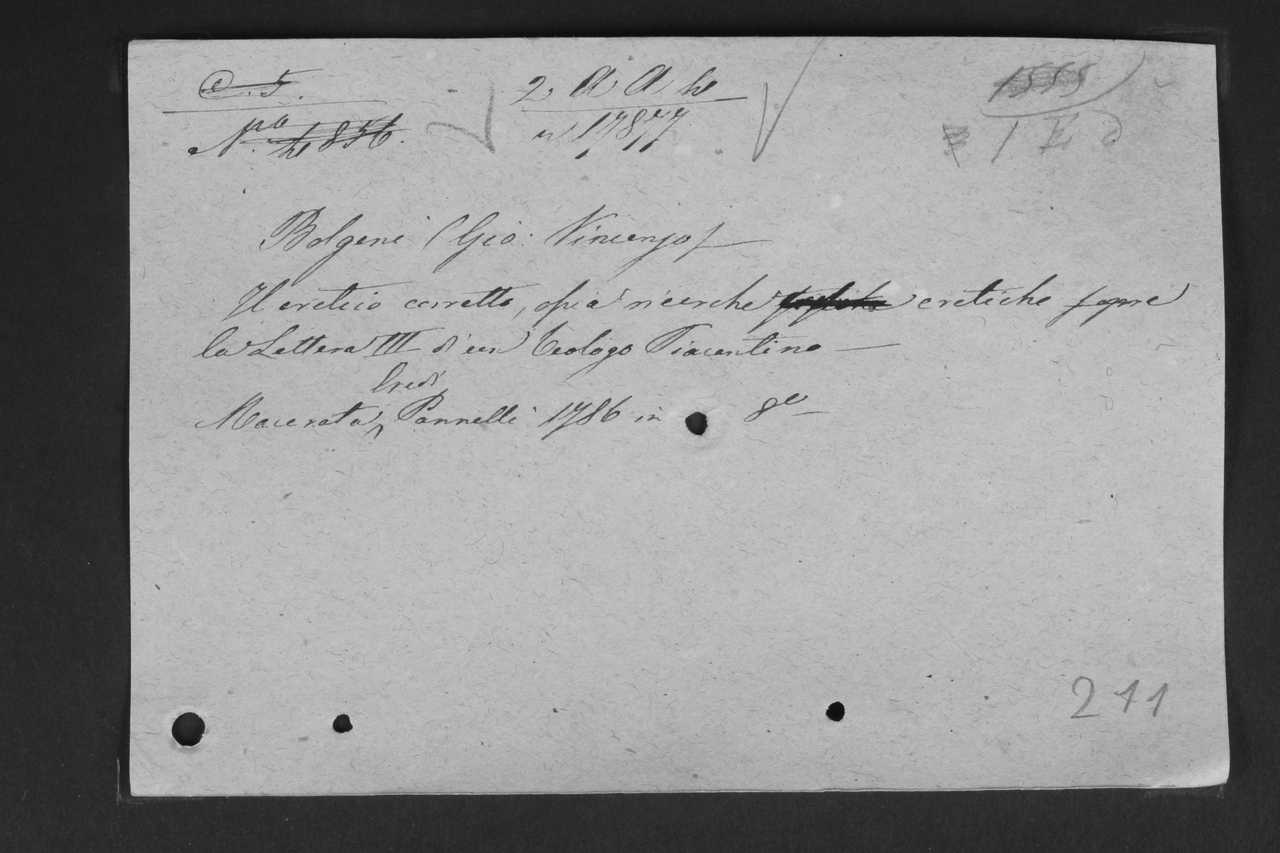 C. T. 2. A A h
N.ro 4856. n 178
1 E
Bolgeni (Gio: Vincenzo)
Il critico corretto, ossia ricerche critiche sopra
la Lettera III d'un teologo Piacentino
Macerata, Eredi Pannelli 1786 in 8º
211